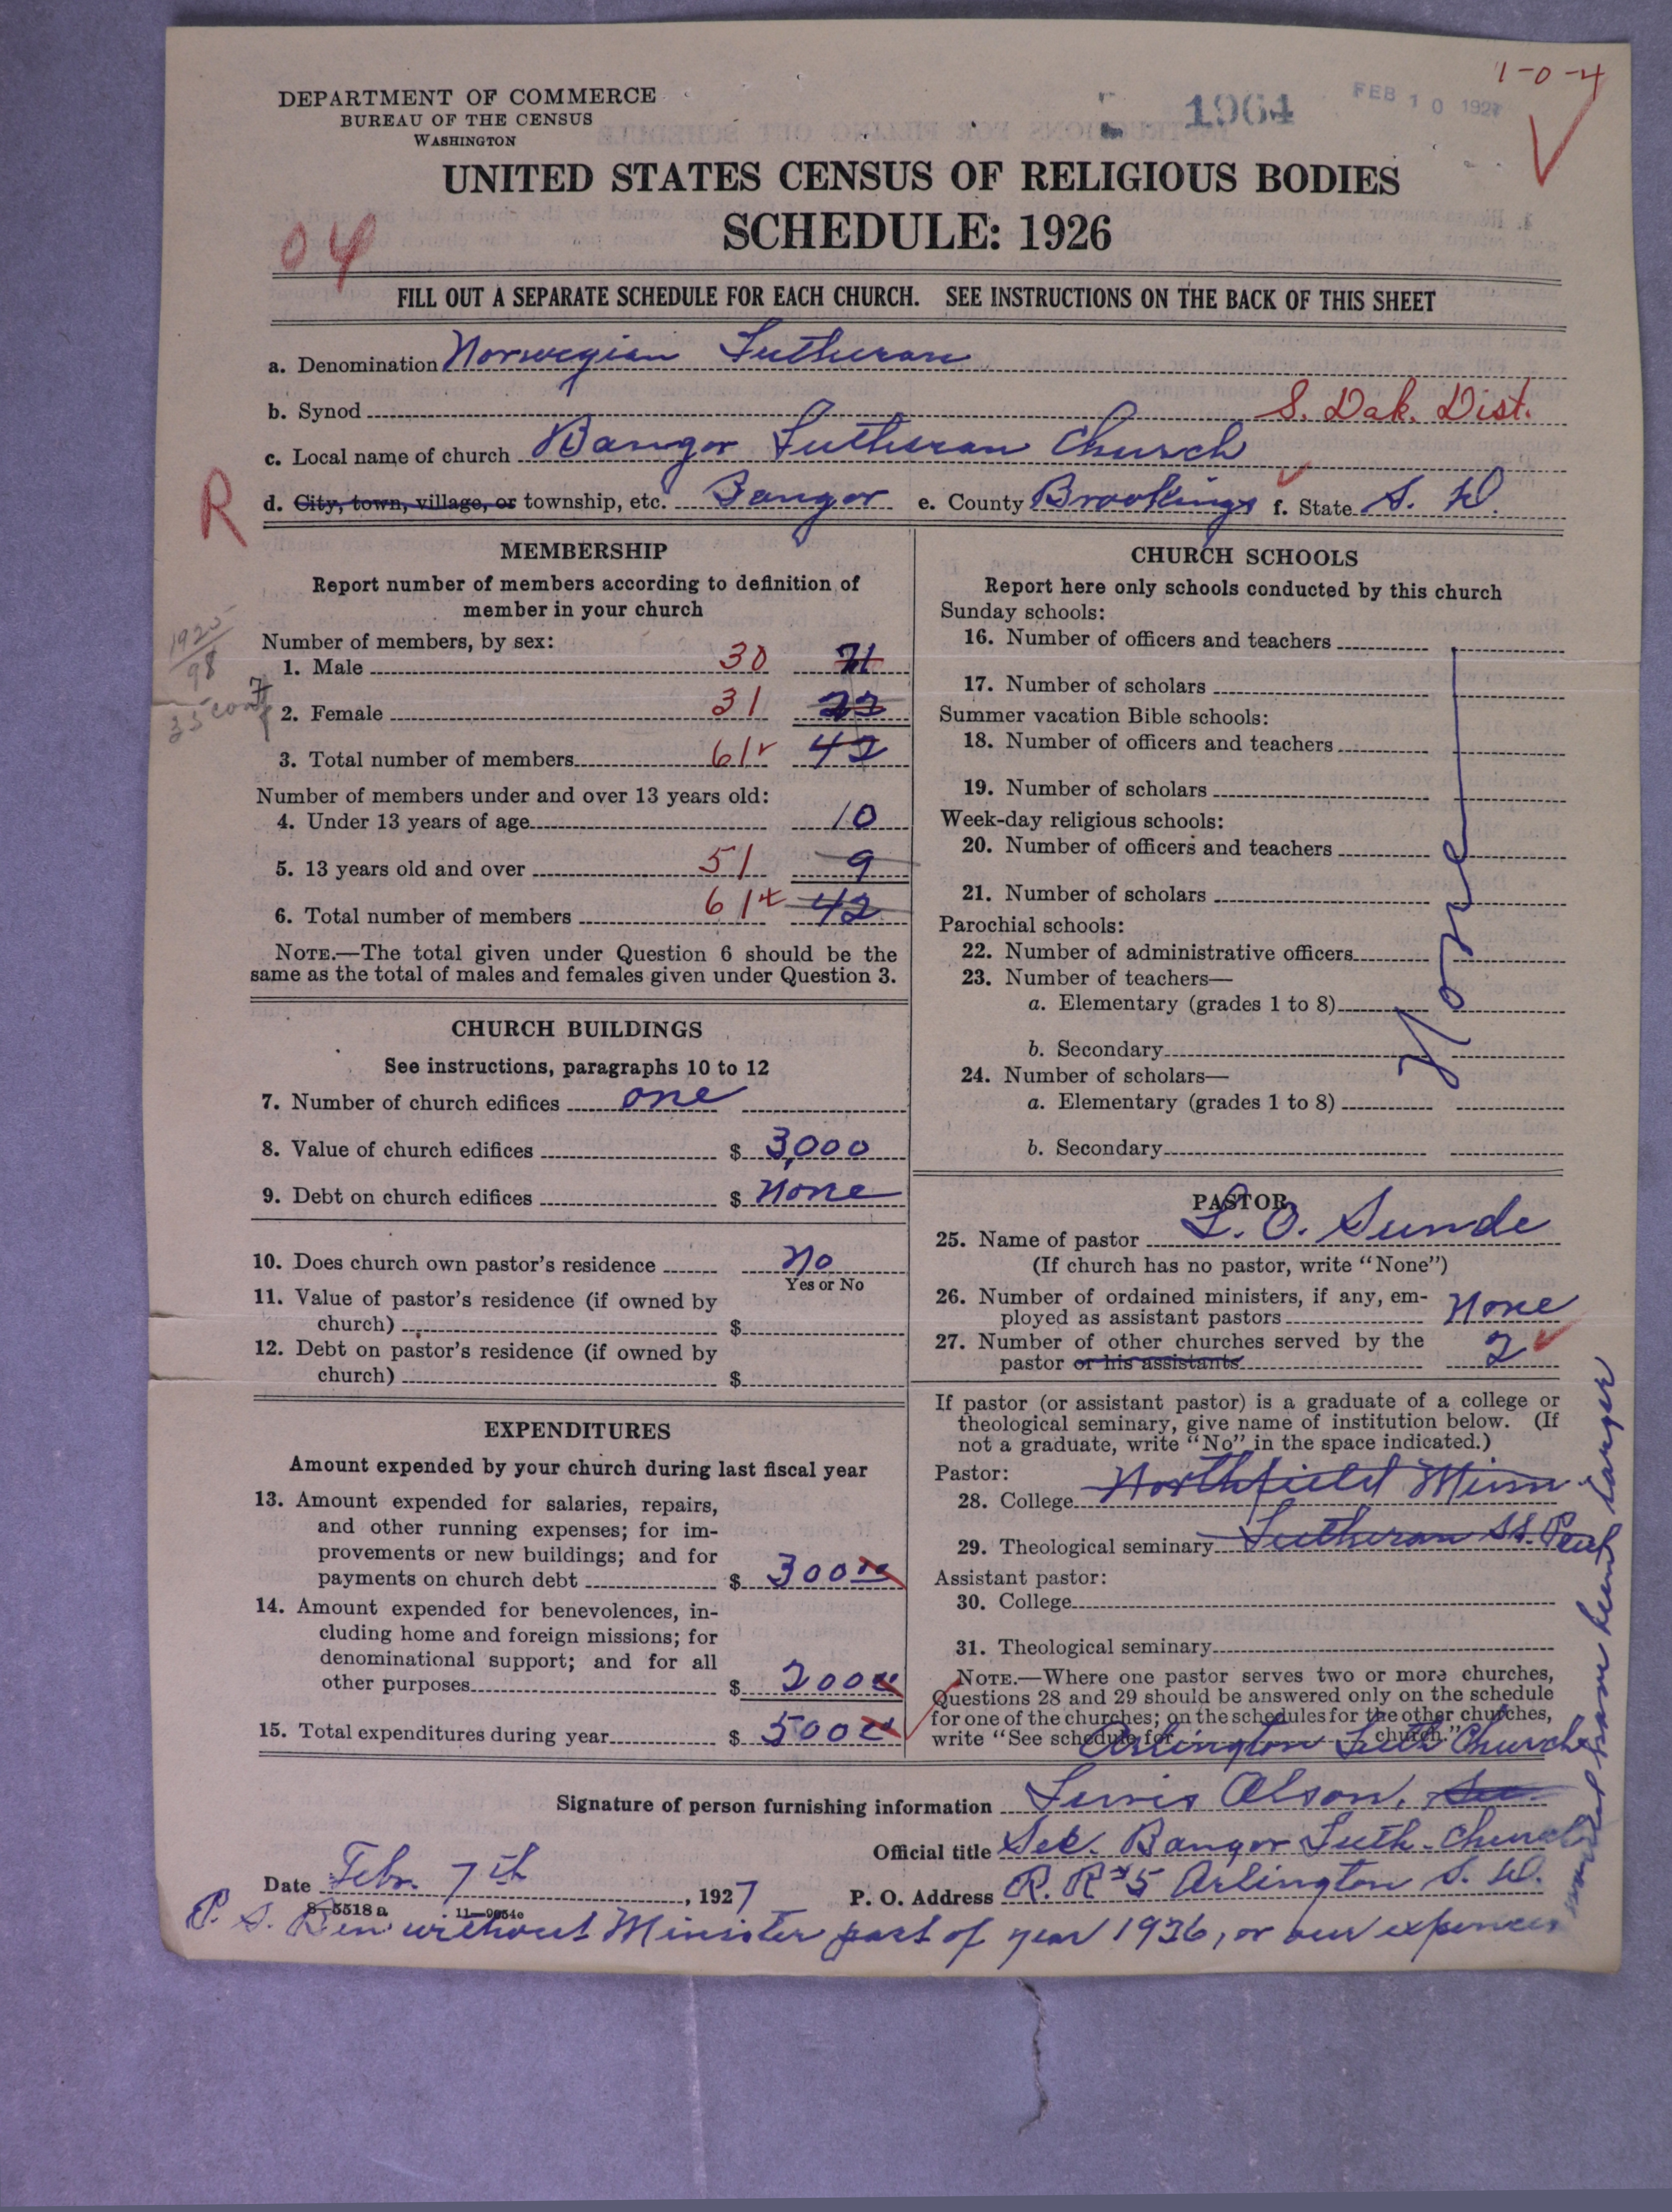 1-0-4
1964
FEB 10 1927
DEPARTMENT OF COMMERCE
BUREAU OF THE CENSUS
WASHINGTON
UNITED STATES CENSUS OF RELIGIOUS BODIES
SCHEDULE: 1926
04
FILL OUT A SEPARATE SCHEDULE FOR EACH CHURCH. SEE INSTRUCTIONS ON THE BACK OF THIS SHEET
a. Denomination Norwegian Lutheran
b. Synod S. Dak. Dist.
c. Local name of church Bangor Lutheran Church
R
d. City, town, village, or township, etc. Bangor e. County Brookings f. State S. D.
MEMBERSHIP
Report number of members according to definition of
member in your church
Number of members, by sex:
1925
98
1. Male 30 21
35 conf
2. Female 31
3. Total number of members 61 42
Number of members under and over 13 years old:
4. Under 13 years of age 10
5. 13 years old and over 51 9
6. Total number of members 61 42
NOTE.—The total given under Question 6 should be the
same as the total of males and females given under Question 3.
CHURCH BUILDINGS
See instructions, paragraphs 10 to 12
7. Number of church edifices one
8. Value of church edifices $ 3,000
9. Debt on church edifices $ None
10. Does church own pastor's residence No
Yes or No
11. Value of pastor's residence (if owned by
church) $
12. Debt on pastor's residence (if owned by
church) $
EXPENDITURES
Amount expended by your church during last fiscal year
13. Amount expended for salaries, repairs,
and other running expenses; for im-
provements or new buildings; and for
payments on church debt $ 300 00
14. Amount expended for benevolences, in-
cluding home and foreign missions; for
denominational support; and for all
other purposes $ 200 00
15. Total expenditures during year $ 500 00
CHURCH SCHOOLS
Report here only schools conducted by this church
Sunday schools:
16. Number of officers and teachers
17. Number of scholars
Summer vacation Bible schools:
18. Number of officers and teachers
19. Number of scholars
Week-day religious schools:
20. Number of officers and teachers
21. Number of scholars
Parochial schools:
22. Number of administrative officers
23. Number of teachers—
a. Elementary (grades 1 to 8)
b. Secondary
24. Number of scholars—
a. Elementary (grades 1 to 8)
b. Secondary
None
PASTOR
25. Name of pastor L. O. Sunde
(If church has no pastor, write "None")
26. Number of ordained ministers, if any, em-
ployed as assistant pastors None
27. Number of other churches served by the
pastor or his assistants 2
If pastor (or assistant pastor) is a graduate of a college or
theological seminary, give name of institution below. (If
not a graduate, write "No" in the space indicated.)
Pastor:
28. College Northfield Minn
29. Theological seminary Lutheran St. Paul
Assistant pastor:
30. College
31. Theological seminary
NOTE.—Where one pastor serves two or more churches,
Questions 28 and 29 should be answered only on the schedule
for one of the churches; on the schedules for the other churches,
write "See schedule for church."
Arlington Luth Church
Signature of person furnishing information Lewis Olson, Sec.
Official title Sec. Bangor Luth. Church
Date Febr. 7th, 1927
P. O. Address R. R #5 Arlington S. D.
8-5518a 11-9054e
P. S. Ben without Minister part of year 1926, or our expences
would have been larger